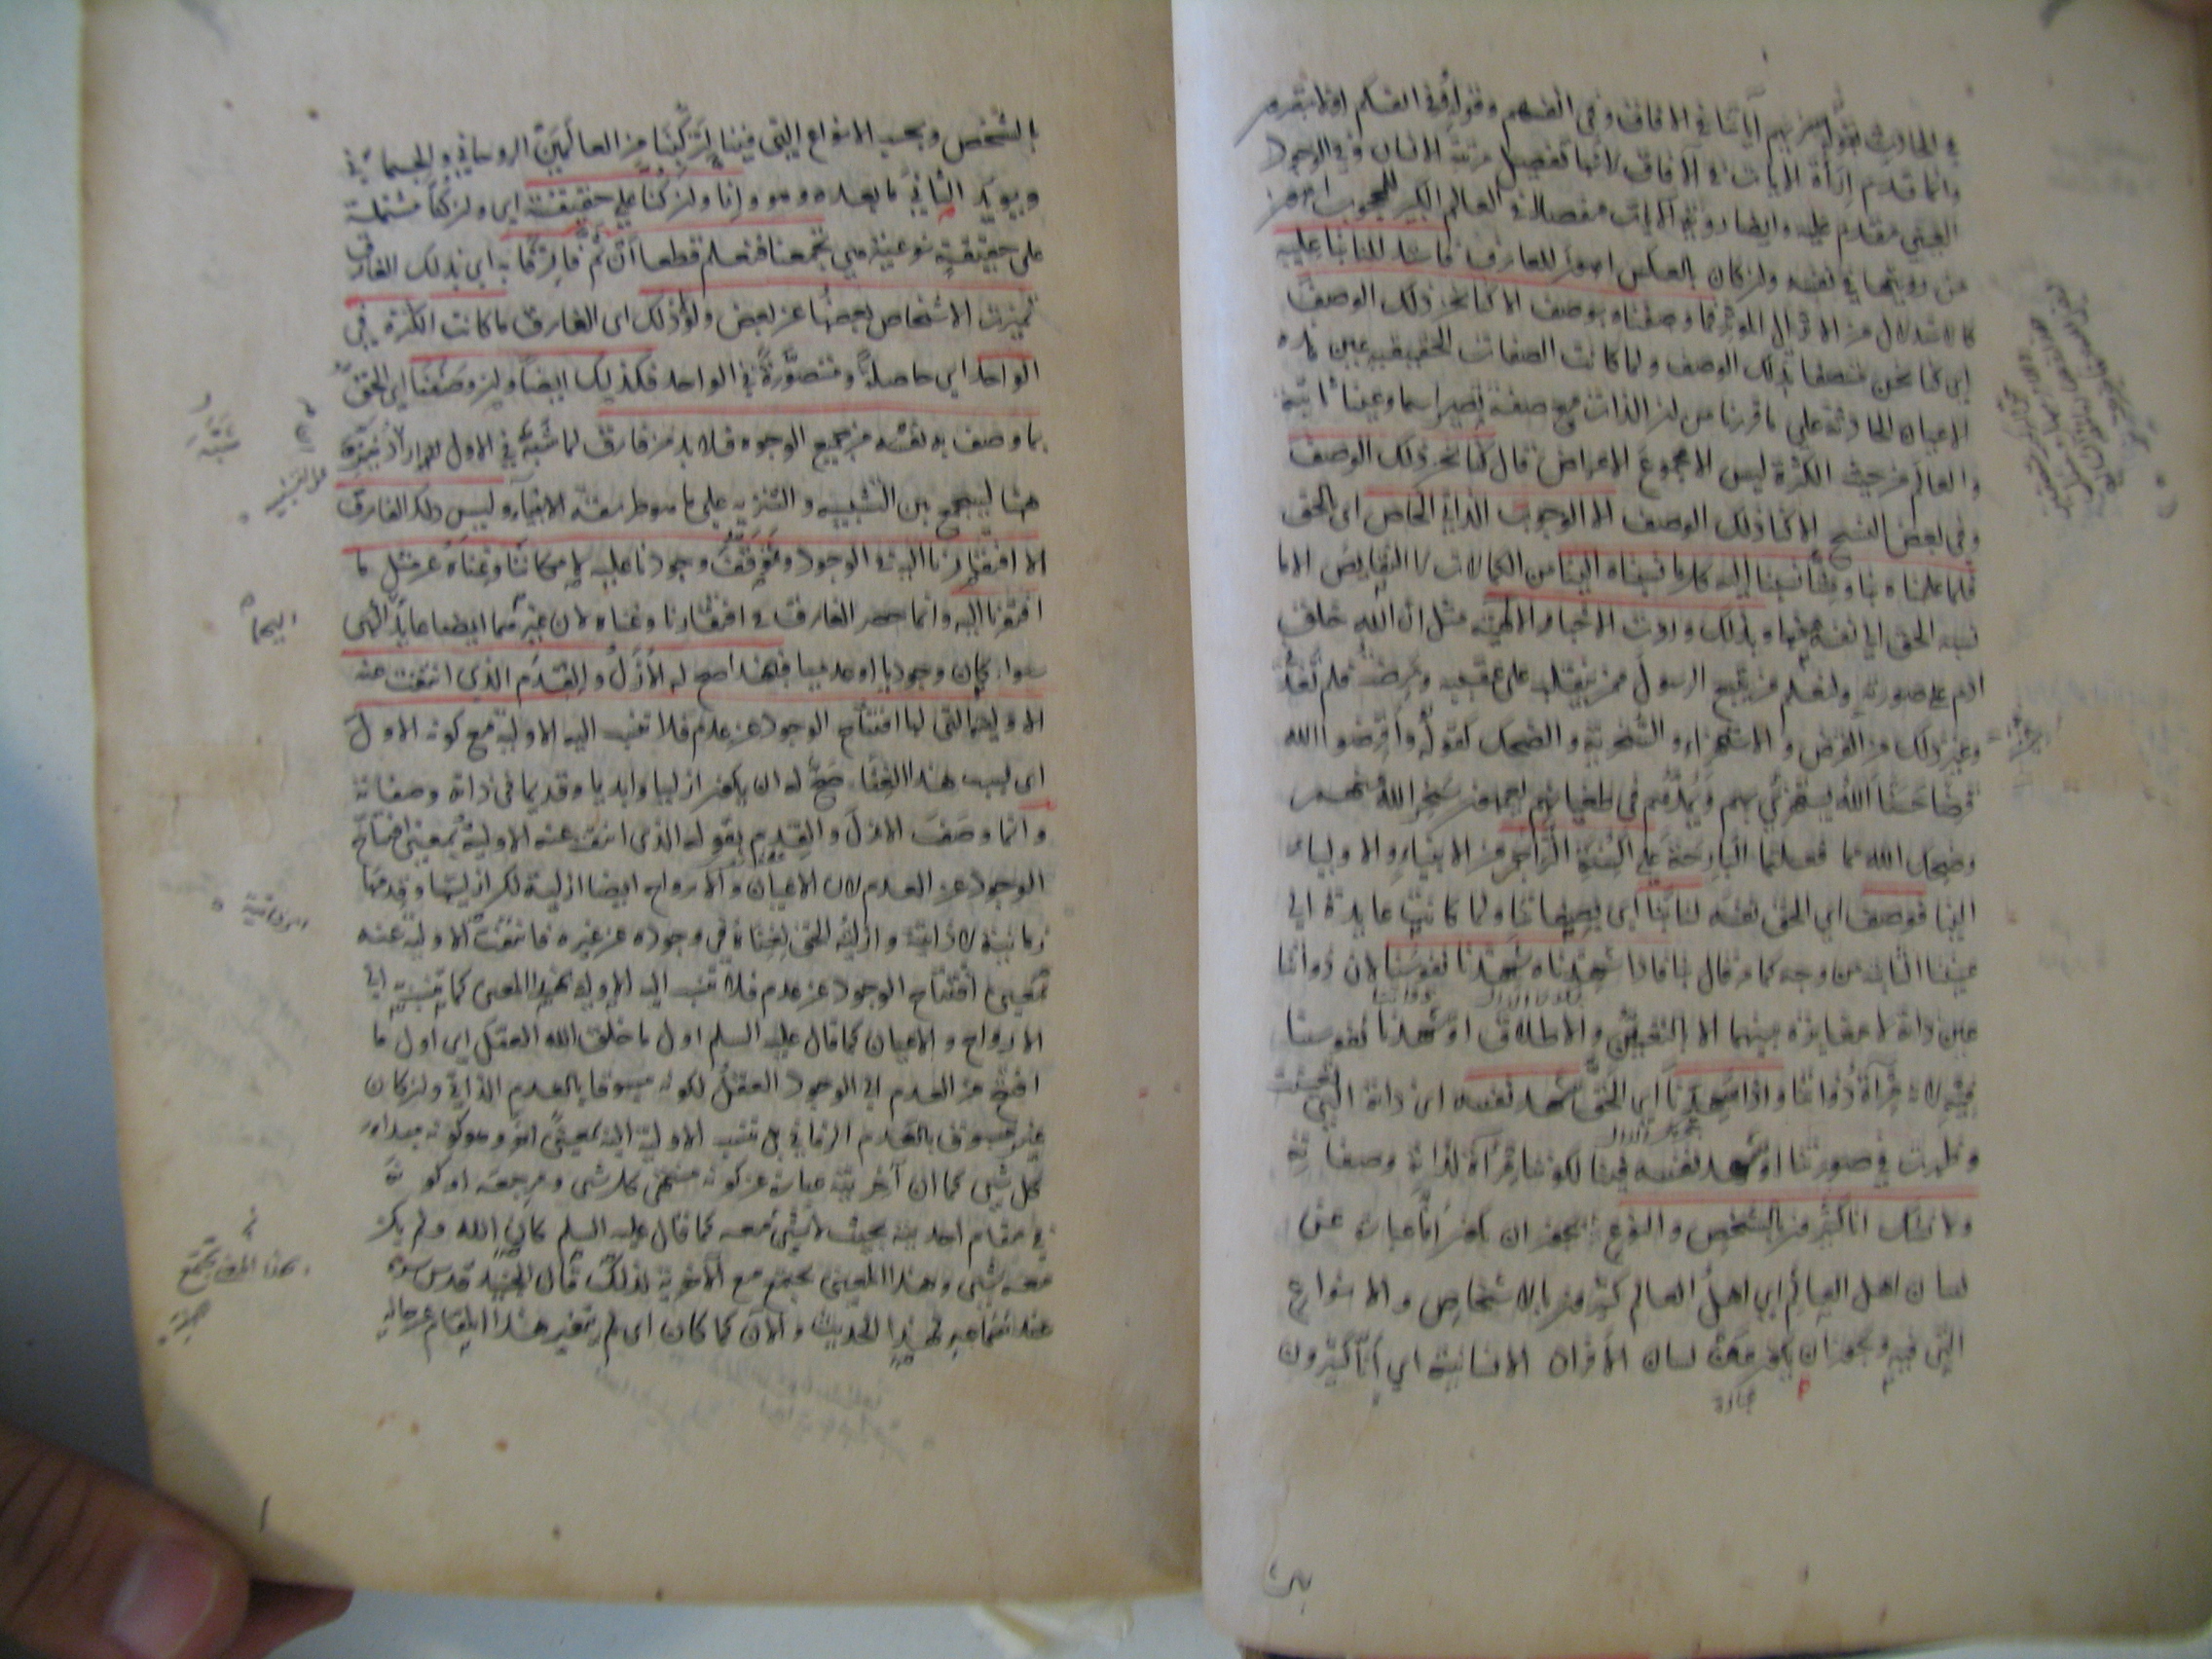 في الحادث بقوله سنريهم آياتنا في الافاق وفي انفسهم وقوله وفي انفسكم افلا تبصرون
وانما قدم اراءة الايات في الآفاق لانها تفصيل مرتبة الانسان وفي الوجود
العيني مقدم عليه وايضا روية الآيات مفصلا في العالم الكبير للمحجوب اهون
من رويتها في نفسه وان كان بالعكس اهون للعارف فاستدللنا بنا عليه
كالاستدلال من الاثر الى الموثر فما وصفناه بوصف الا كنا نحن ذلك الوصف
اي كنا نحن متصفا بذلك الوصف ولما كانت الصفات الحقيقيه عين هذه
الاعيان الحادثة على ما قررنا من ان الذات مع صفة تصير اسما وعينا ثابتة
والعالم من حيث الكثرة ليس الا مجموع الاعراض قال كنا نحن ذلك الوصف
وفي بعض النسخ الا كنا ذلك الوصف الا الوجوب الذاتي الخاص اى الحق
فلما علمناه بنا ومنا نسبنا اليه كل ما نسبناه الينا من الكمالات لا النقايص الا ما
نسبه الحق الى نفسه منها وبذلك وردت الاخبار الالهية مثل ان الله خلق
ادم على صورته ولنعلم من يتبع الرسول ممن ينقلب على عقبيه ومرضت فلم تعد
وغير ذلك من القرض والاستهزاء والسخرية والضحك كقوله وأقرضوا الله
قرضا حسنا الله يستهزئ بهم ويمدهم في طغيانهم يعمهون سخر الله منهم
وضحك الله مما فعلتما البارحة على السنة التراجم من الانبياء والاولياء
الينا فوصف اي الحق نفسه لنا بنا أي بصفاتنا ولما كانت عايدة الى
عيننا الثابتة من وجه كما مر قال بنا فاذا شهدناه شهدنا نفوسنا لان ذواتنا
عين ذاته لا مغايرة بينهما الا بالتعين والاطلاق او شهدنا نفوسنا
فيه لانه مرآة ذواتنا واذا شهدنا أي الحق شهد نفسه اى ذاته التي تعينت
وظهرت في صورتنا او شهد نفسه فينا لكوننا مرآة لذاته وصفاته
ولا نشك انا كثيرون بالشخص والنوع يجوز ان يكون انا عبارة عن
لسان اهل العالم اي اهل العالم كثيرون بالاشخاص والانواع
التي فيه ويجوز ان يكون عن لسان الأفراد الانسانية اي انا كثيرون
بالشخص وبحسب الانواع التي فينا لتركبنا من العالمين الروحاني والجسماني
ويويد الثاني ما بعده وهو وانا وان كنا على حقيقة اى وان كنا مشتملة
على حقيقة نوعية هي تجمعنا فنعلم قطعا أن ثم فارقا به اى بذلك الفارق
تميزت الاشخاص بعضها عن بعض ولولا ذلك اى الفارق ما كانت الكثرة في
الواحد اي حاصلة ومتصورة في الواحد فكذلك ايضا وان وصفنا اي الحق
بما وصف به نفسه من جميع الوجوه فلا بد من فارق لما شبه في الاول اراد ينزه
هنا ليجمع بين التشبيه والتنزيه على ما هو طريقة الانبياء وليس ذلك الفارق
الا افتقارنا اليه في الوجود وتوقف وجودنا عليه لامكاننا وغناه عن مثل ما
افتقرنا اليه وانما حصر الفارق في افتقارنا وغناه لان غيرهما ايضا عايد اليهما
سواء كان وجوديا او عدميا فبهذا صح له الأزل والقدم الذي انتفت عنه
الاولية التي لها افتتاح الوجود عن عدم فلا تنسب اليه الاولية مع كونه الاول
اى بسبب هذا الغنا صح له ان يكون ازليا وابديا وقديما في ذاته وصفاته
وانما وصف الازل والقدم بقوله الذي انتفت عنه الاولية بمعنى افتتاح
الوجود عن العدم لان الاعيان والارواح ايضا ازلية لكن ازليتها وقدمها
زمانية لا ذاتية وازلية الحق لغناه في وجوده عن غيره فانتفت الاولية عنه
بمعنى افتتاح الوجود عن عدم فلا تنسب اليه الاولية بهذا المعنى كما تنسب الى
الارواح والاعيان كما قال عليه السلم اول ما خلق الله العقل اى اول ما
افتتح من العدم الى الوجود العقل لكونه مسبوقا بالعدم الذاتي وان كان
غير مسبوق بالعدم الزماني بل تنسب الاولية اليه بمعنى اخر وهو كونه مبداء
كل شي كما ان آخريته عبارة عن كونه منتهى كل شى ومرجعه او كونه
في مقام احديته بحيث لا شي معه كما قال عليه السلم كان الله ولم يكن
معه شي وهذا المعنى يجتمع مع الآخرية لذلك قال الجنيد قدس سره
عند سماعه لهذا الحديث والآن كما كان اى لم يتغير هذا المقام عن حاله